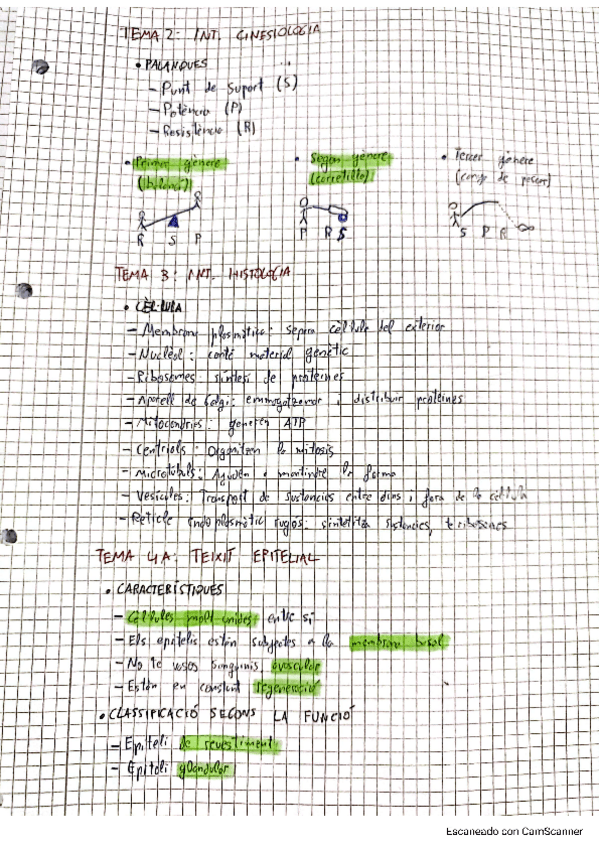 TEMA 2: INT. CINESIOLOGIA
• PALANQUES
– Punt de Suport (S)
– Potència (P)
– Resistència (R)
• Primer gènere • Segon gènere • Tercer gènere
(balança) (carretilla) (canya de pescar)
R S P P R S S P R
TEMA 3: INT. HISTOLOGIA
• CÈL·LULA
– Membrana plasmàtica: separa cèl·lula del exterior
– Nuclèol: conté material genètic
– Ribosomes: síntesi de proteïnes
– Aparell de Golgi: emmagatzemar i distribuir proteïnes
– Mitocondries: generen ATP
– Centríols: organitzen la mitosis
– Microtúbuls: Ajuden a mantindre la forma
– Vesícules: Transport de sustancies entre dins i fora de la cèl·lula
– Reticle endoplasmàtic rugós: sintetitza sustancies, té ribosomes
TEMA 4A: TEIXIT EPITELIAL
• CARACTERÍSTIQUES
– Cèl·lules molt unides entre sí
– Els epitelis estàn subjectes a la membrana basal
– No té vasos sanguinis, avascular
– Están en constant regeneració
• CLASSIFICACIÓ SEGONS LA FUNCIÓ
– Epiteli de revestiment
– Epiteli glandular
Escaneado con CamScanner